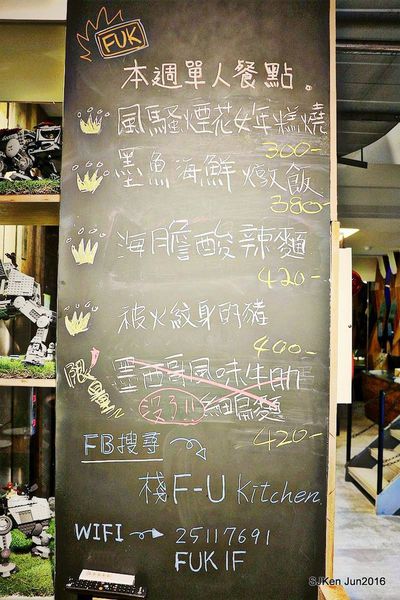 FUK
本週單人餐點。
風騷煙花女年糕燒
300-
墨魚海鮮燉飯
380-
海膽酸辣麵
420-
被火紋身的豬
400-
限量!!
墨西哥風味牛肋
沒了!! 細扁麵
420-
FB搜尋
棧 F-U Kitchen
WIFI 25117691
FUK IF
SJKen Jun2016